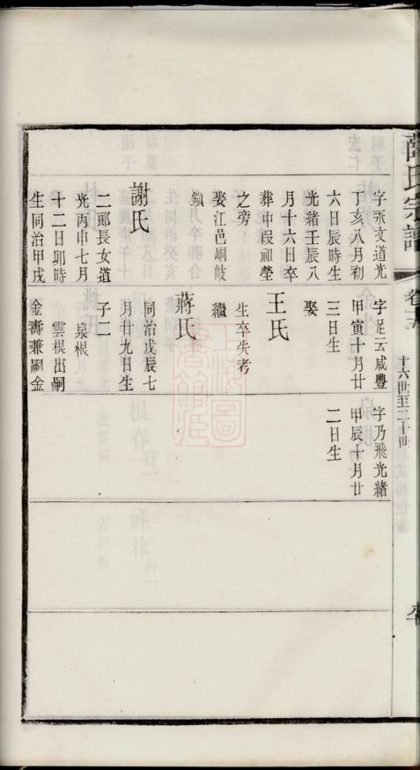 氏宗譜
卷
十六世至二十世
字永文道光
丁亥八月初
六日辰時生
光緒壬辰八
月十六日卒
葬中段祖塋
之旁
娶江邑峒岐
鎮
謝氏
二郎長女道
光丙申七月
十二日卯時
生同治甲戌
字足云咸豐
甲寅十月廿
三日生
娶
王氏
生卒失考
繼
蔣氏
同治戊辰七
月廿九日生
子二
泉根
雲根出嗣
金壽兼嗣金
字乃飛光緒
甲辰十月廿
二日生
上海圖書館藏